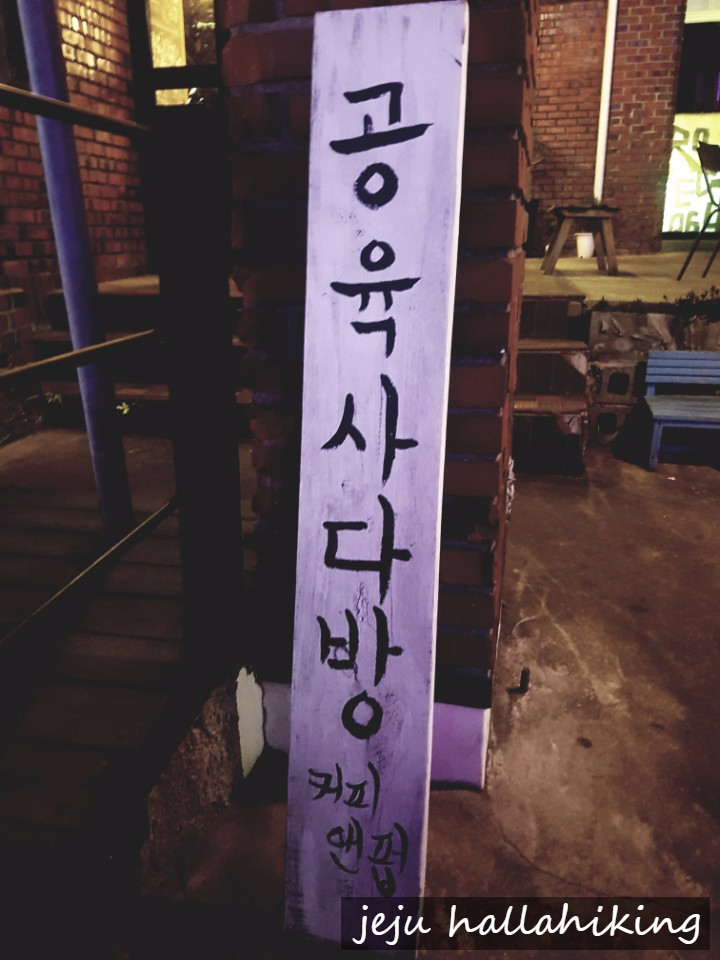 공육사다방
커피
앤펍
jeju hallahiking